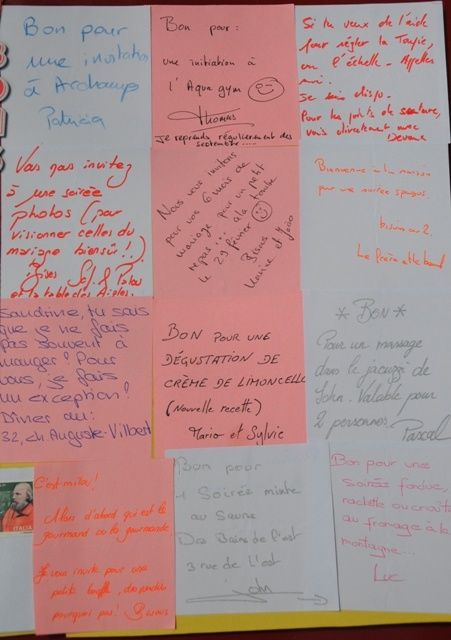 Bon pour
une invitation
à Archamps
Patricia
Bon pour :
une initiation à
l'Aqua gym
THOMAS
Je reprends régulièrement dès
septembre.....
Si tu veux de l'aide
pour régler la Toupie,
ou l'échelle - Appelles
moi.
Je suis dispo.
Pour les petits de
viens directement avec
Vous nous invitez
à une soirée
photos (pour
visionner celles du
mariage biensûr!!)
Bises Sof. &
et la table des Aigles.
Nous vous invitons
pour vos 6 mois de
mariage pour un petit
repas... à la
le 29 février
Bisous
et
Bienvenue à la maison
par une soirée
bisous au 2.
Sandrine, tu sais
que je ne fais
pas souvent à
manger! Pour
vous, je fais
un exception!
Dîner au:
32, ch. Auguste-Vilbert
BON POUR UNE
DÉGUSTATION DE
CRÈME DE LIMONCELLO
(Nouvelle recette)
Mario et Sylvie
* BON *
Pour un massage
dans le jacuzzi de
John. Valable pour
2 personnes.
Pascal
ITALIA
C'est
Alors d'abord qui est le
gourmand ou la gourmande
Je vous invite pour une
petite bouffe,
pourquoi pas! Bisous
Bon pour
1 Soirée mixte
au Sauna
Des Bains de l'est
3 rue de l'est
John
Bon pour une
soirée fondue,
raclette ou croûte
au fromage à la
montagne...
Luc